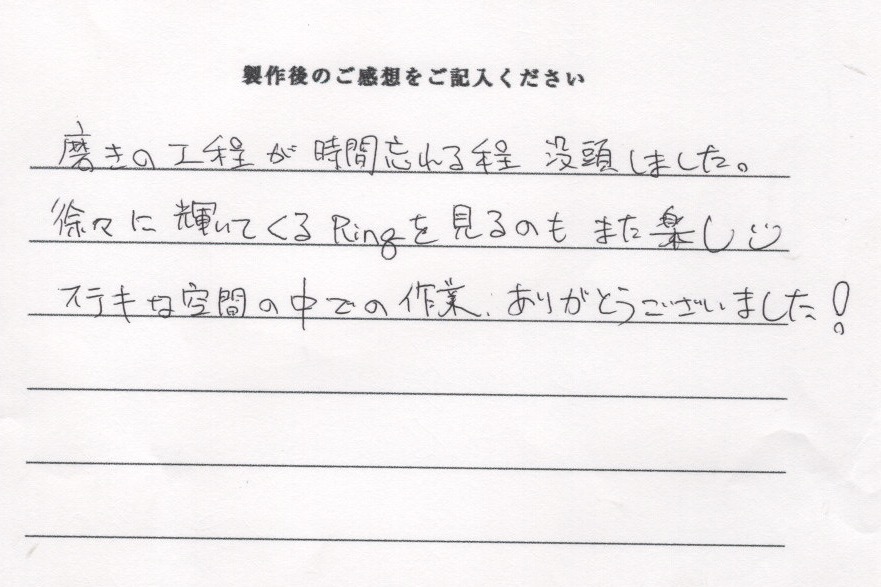 製作後のご感想をご記入ください
磨きの工程が時間忘れる程没頭しました。
徐々に輝いてくるRingを見るのもまた楽し
ステキな空間の中での作業、ありがとうございました!